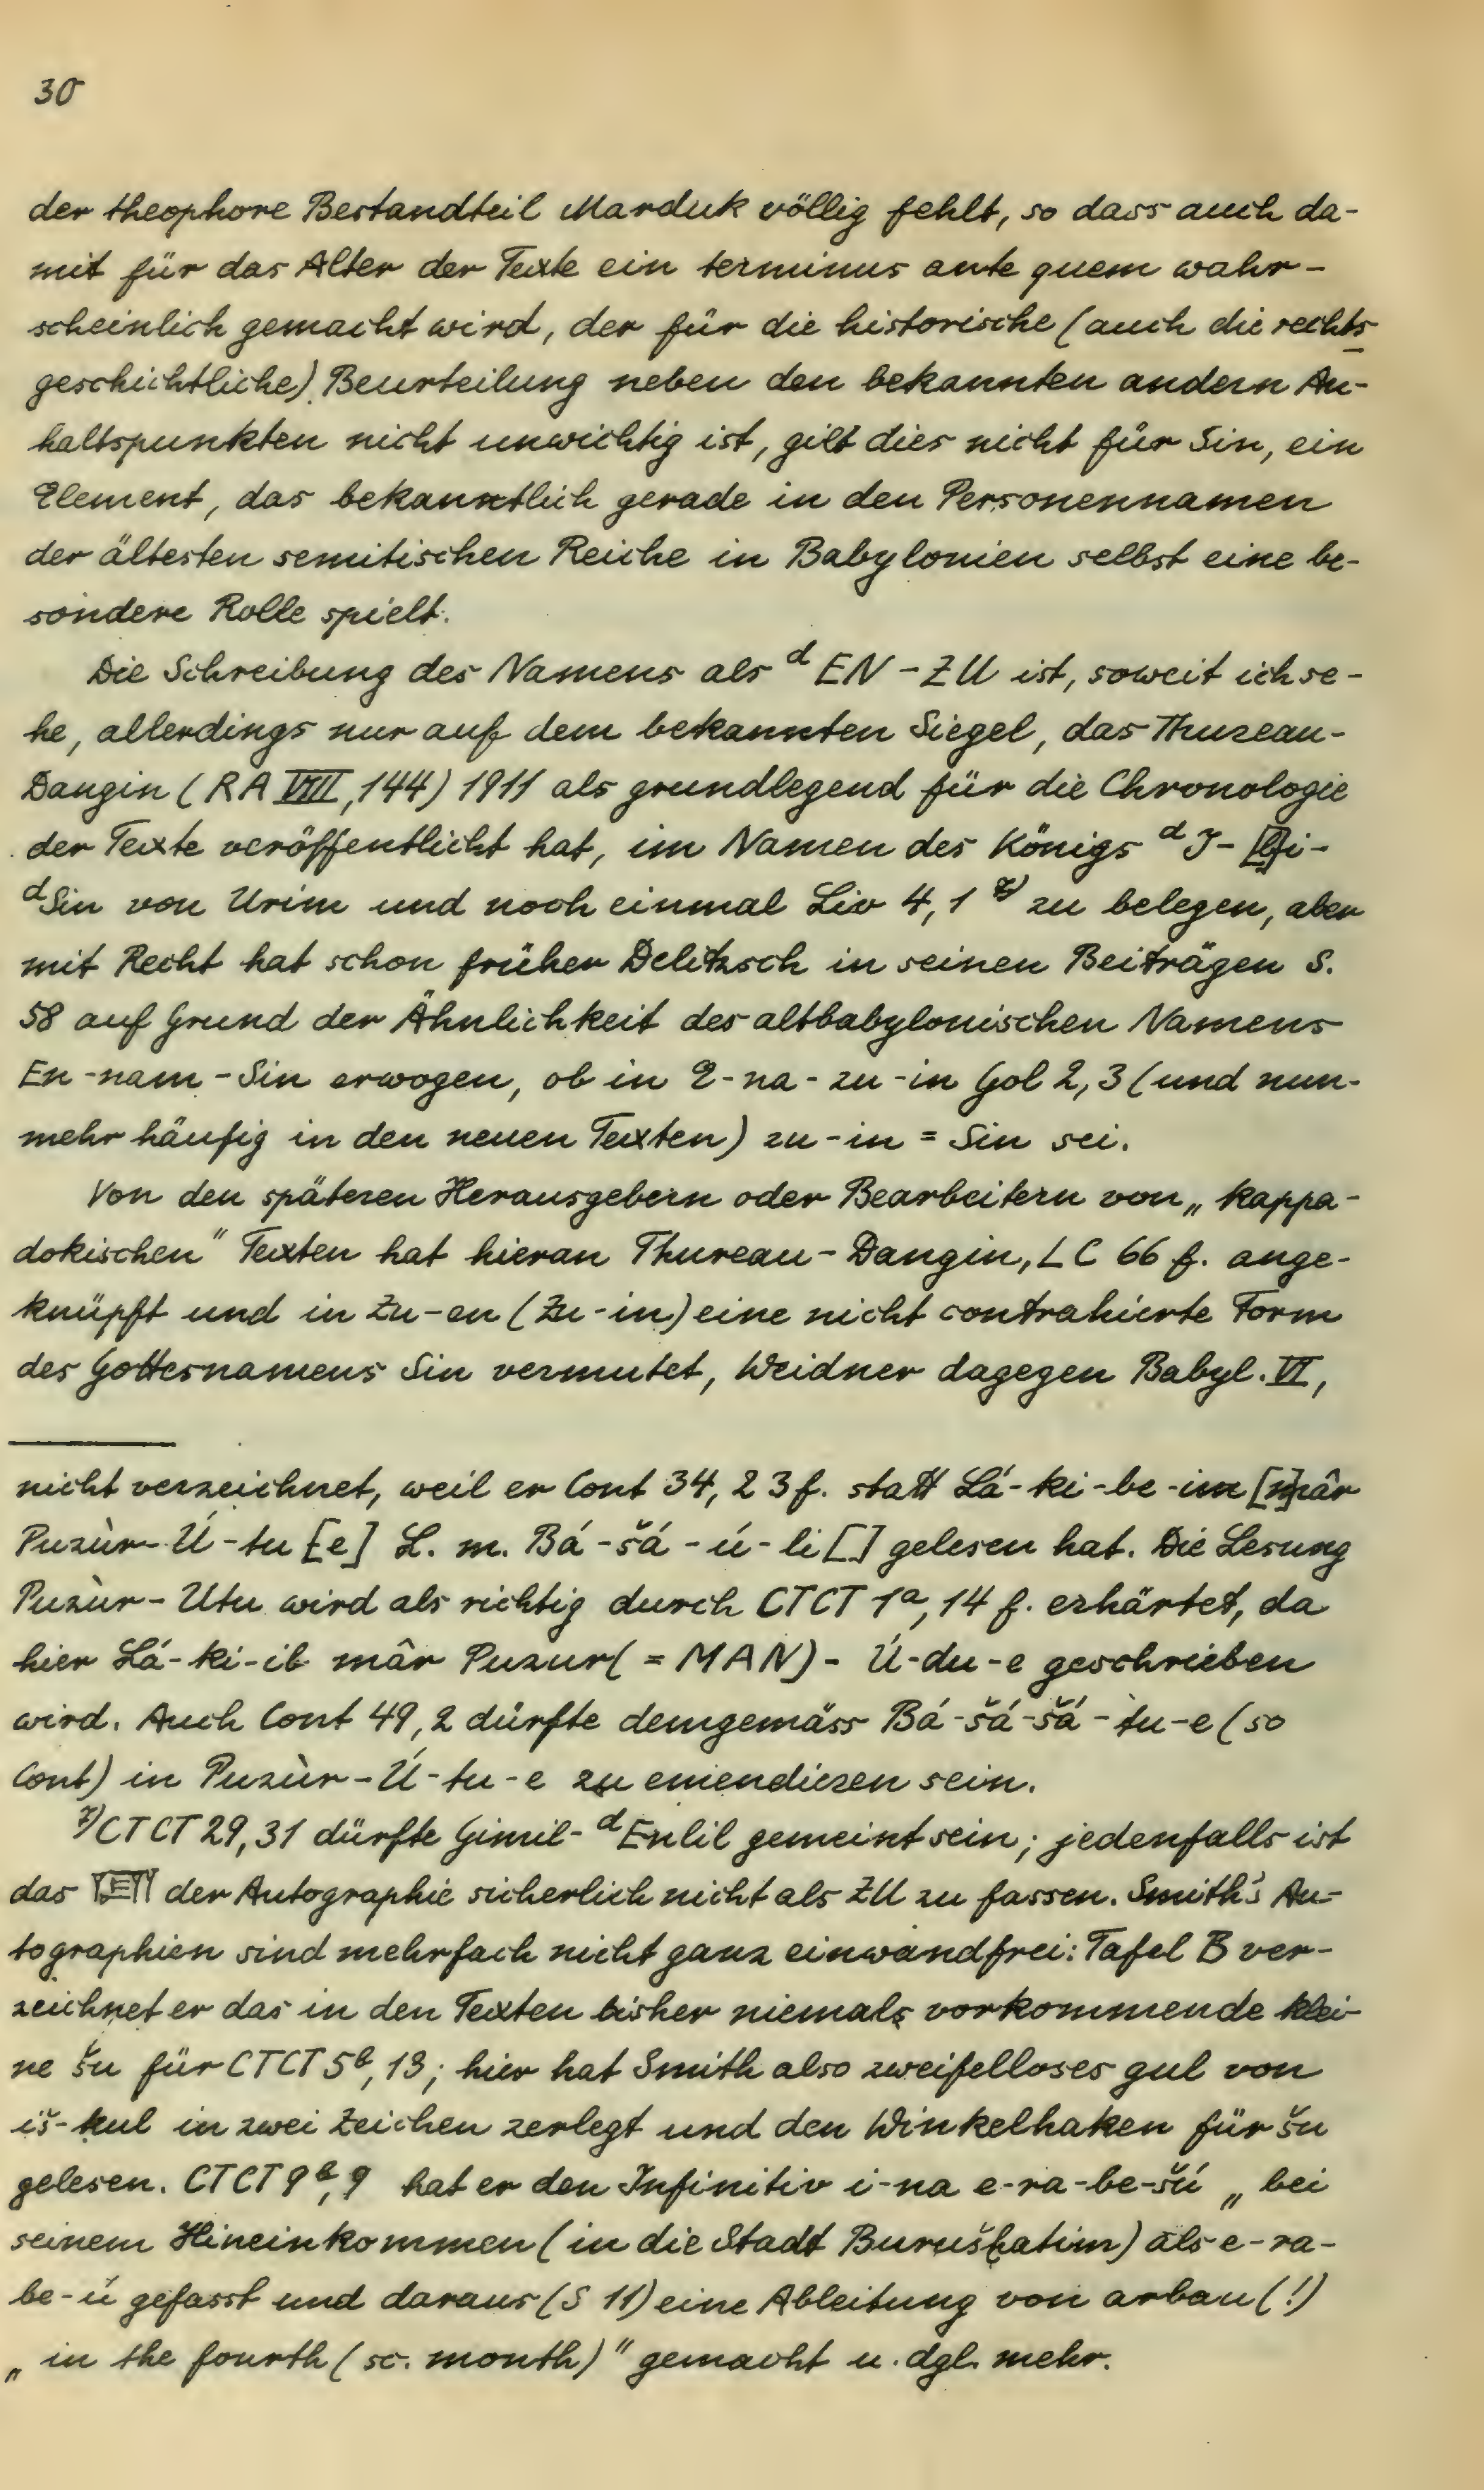 30
der theophore Bestandteil Marduk völlig fehlt, so dass auch da-
mit für das Alter der Texte ein terminus ante quem wahr-
scheinlich gemacht wird, der für die historische (auch die rechts
geschichtliche) Beurteilung neben den bekannten andern An-
haltspunkten nicht unwichtig ist, gilt dies nicht für Sin, ein
Element, das bekanntlich gerade in den Personennamen
der ältesten semitischen Reiche in Babylonien selbst eine be-
sondere Rolle spielt.
Die Schreibung des Namens als ᵈ EN-ZU ist, soweit ich se-
he, allerdings nur auf dem bekannten Siegel, das Thureau-
Dangin (RA VIII, 144) 1911 als grundlegend für die Chronologie
der Texte veröffentlicht hat, im Namen des Königs ᵈ I-[b]i-
ᵈSin von Urim und noch einmal Liv 4, 1 ⁷⁾ zu belegen, aber
mit Recht hat schon früher Delitzsch in seinen Beiträgen S.
58 auf Grund der Ähnlichkeit des altbabylonischen Namens
En-nam-Sin erwogen, ob in E-na-zu-in Gol 2, 3 (und nun-
mehr häufig in den neuen Texten) zu-in = Sin sei.
Von den späteren Herausgebern oder Bearbeitern von „kappa-
dokischen" Texten hat hieran Thureau-Dangin, LC 66 f. ange-
knüpft und in Zu-en (Zu-in) eine nicht contrahierte Form
des Gottesnamens Sin vermutet, Weidner dagegen Babyl. VI,
nicht verzeichnet, weil er Cont 34, 23 f. statt Lá-ki-be-im [m]âr
Puzùr-Ú-tu [e] L. m. Bá-šá-ú-li [] gelesen hat. Die Lesung
Puzùr-Utu wird als richtig durch CTCT 1ᵃ, 14 f. erhärtet, da
hier Lá-ki-ib mâr Puzur (= MAN)- Ú-du-e geschrieben
wird. Auch Cont 49, 2 dürfte demgemäss Bá-šá-šá-tu-e (so
Cont) in Puzùr-Ú-tu-e zu emendieren sein.
⁷⁾ CTCT 29, 31 dürfte Gimil-ᵈEnlil gemeint sein; jedenfalls ist
das der Autographie sicherlich nicht als ZU zu fassen. Smith's Au-
tographien sind mehrfach nicht ganz einwandfrei: Tafel B ver-
zeichnet er das in den Texten bisher niemals vorkommende klei-
ne šu für CTCT 5ᵇ, 13; hier hat Smith also zweifelloses gul von
iš-kul in zwei Zeichen zerlegt und den Winkelhaken für šu
gelesen. CTCT 9ᵇ, 9 hat er den Infinitiv i-na e-ra-be-šú „bei
seinem Hineinkommen (in die Stadt Burušḫatim) als e-ra-
be-ú gefasst und daraus (S 11) eine Ableitung von arbau (!)
„in the fourth (sc. month)" gemacht u. dgl. mehr.